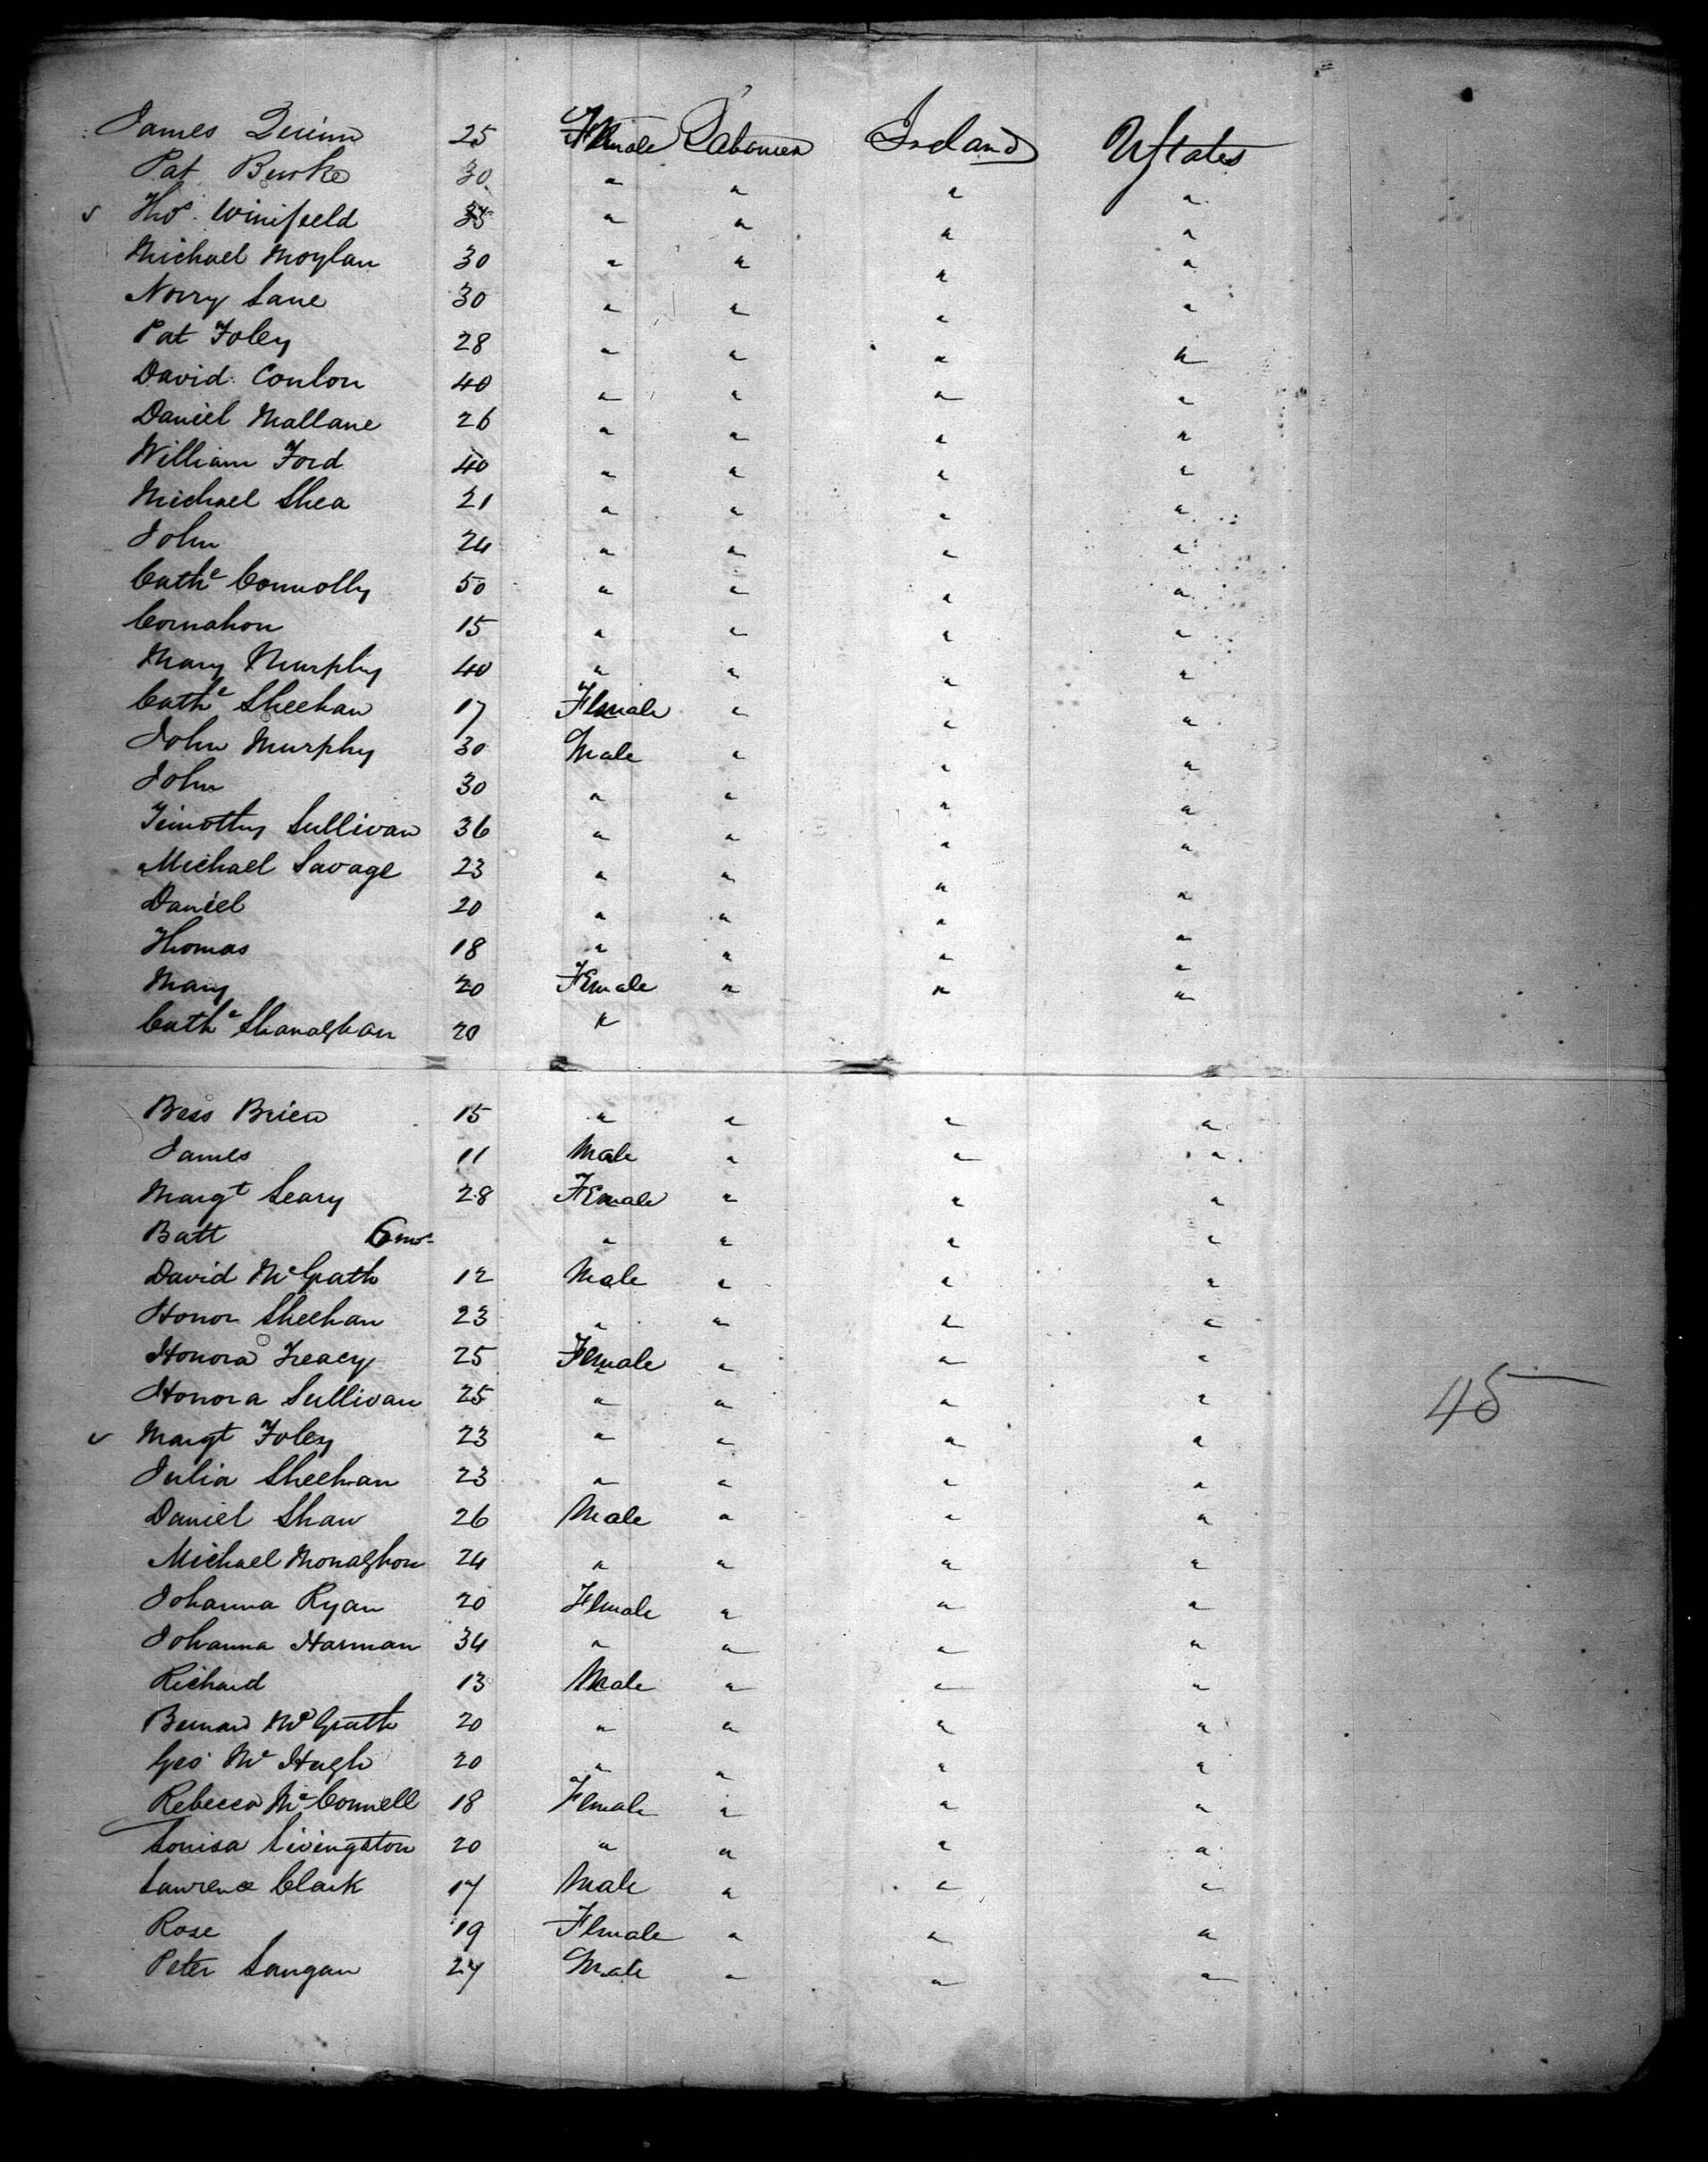 James Quinn 25 Female Labourer Ireland UStates
Pat Burke 30 " " " "
Thos. Winifield 35 " " " "
Michael Moylan 30 " " " "
Norry Lane 30 " " " "
Pat Foley 28 " " " "
David Conlon 40 " " " "
Daniel Mallane 26 " " " "
William Ford 40 " " " "
Michael Shea 21 " " " "
John 24 " " " "
Cathe Connolly 50 " " " "
Cornahon 15 " " " "
Mary Murphy 40 " " " "
Cathe Sheehan 17 Female " " "
John Murphy 30 Male " " "
John 30 " " " "
Timothy Sullivan 36 " " " "
Michael Savage 23 " " " "
Daniel 20 " " " "
Thomas 18 " " " "
Mary 20 Female " " "
Cathe Shanaghan 20 "
Bess Brien 15 " " " "
James 11 Male " " "
Margt Leary 28 Female " " "
Batt 6 mos " " " "
David McGrath 12 Male " " "
Honor Sheehan 23 " " " "
Honora Treacy 25 Female " " "
Honora Sullivan 25 " " " "
45
Margt Foley 23 " " " "
Julia Sheehan 23 " " " "
Daniel Shaw 26 Male " " "
Michael Monaghon 24 " " " "
Johanna Ryan 20 Female " " "
Johanna Harman 34 " " " "
Richard 13 Male " " "
Bernard McGrath 20 " " " "
Geo McHugh 20 " " " "
Rebecca McConnell 18 Female " " "
Louisa Livingston 20 " " " "
Lawrence Clark 17 Male " " "
Rose 19 Female " " "
Peter Langan 27 Male " " "